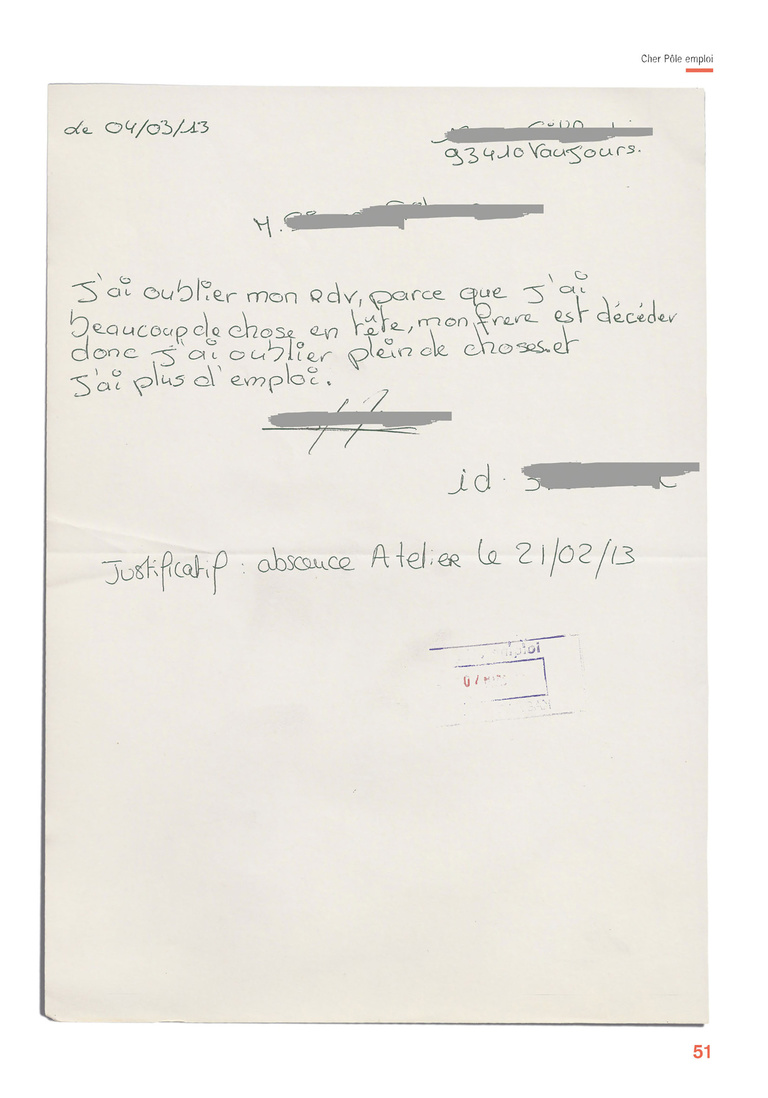 Cher Pôle emploi
de 04/03/13
93410 Vaujours.
M.
J'ai oublier mon rdv, parce que J'ai
beaucoup de chose en tête, mon frere est décéder
donc J'ai oublier plein de choses. et
J'ai plus d'emploi.
id.
Justificatif : absence Atelier le 21/02/13
emploi
51